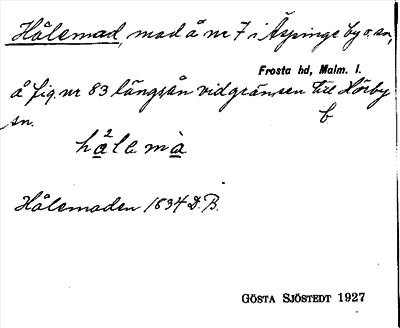 Hålemad, mad å nr 7 i Äspinge by o. sn,
Frosta hd, Malm. l.
å fig. nr 83 längs ån vid gränsen till Hörby
sn. f
hå²lemà
Hålemaden 1834 D. B.
GÖSTA SJÖSTEDT 1927